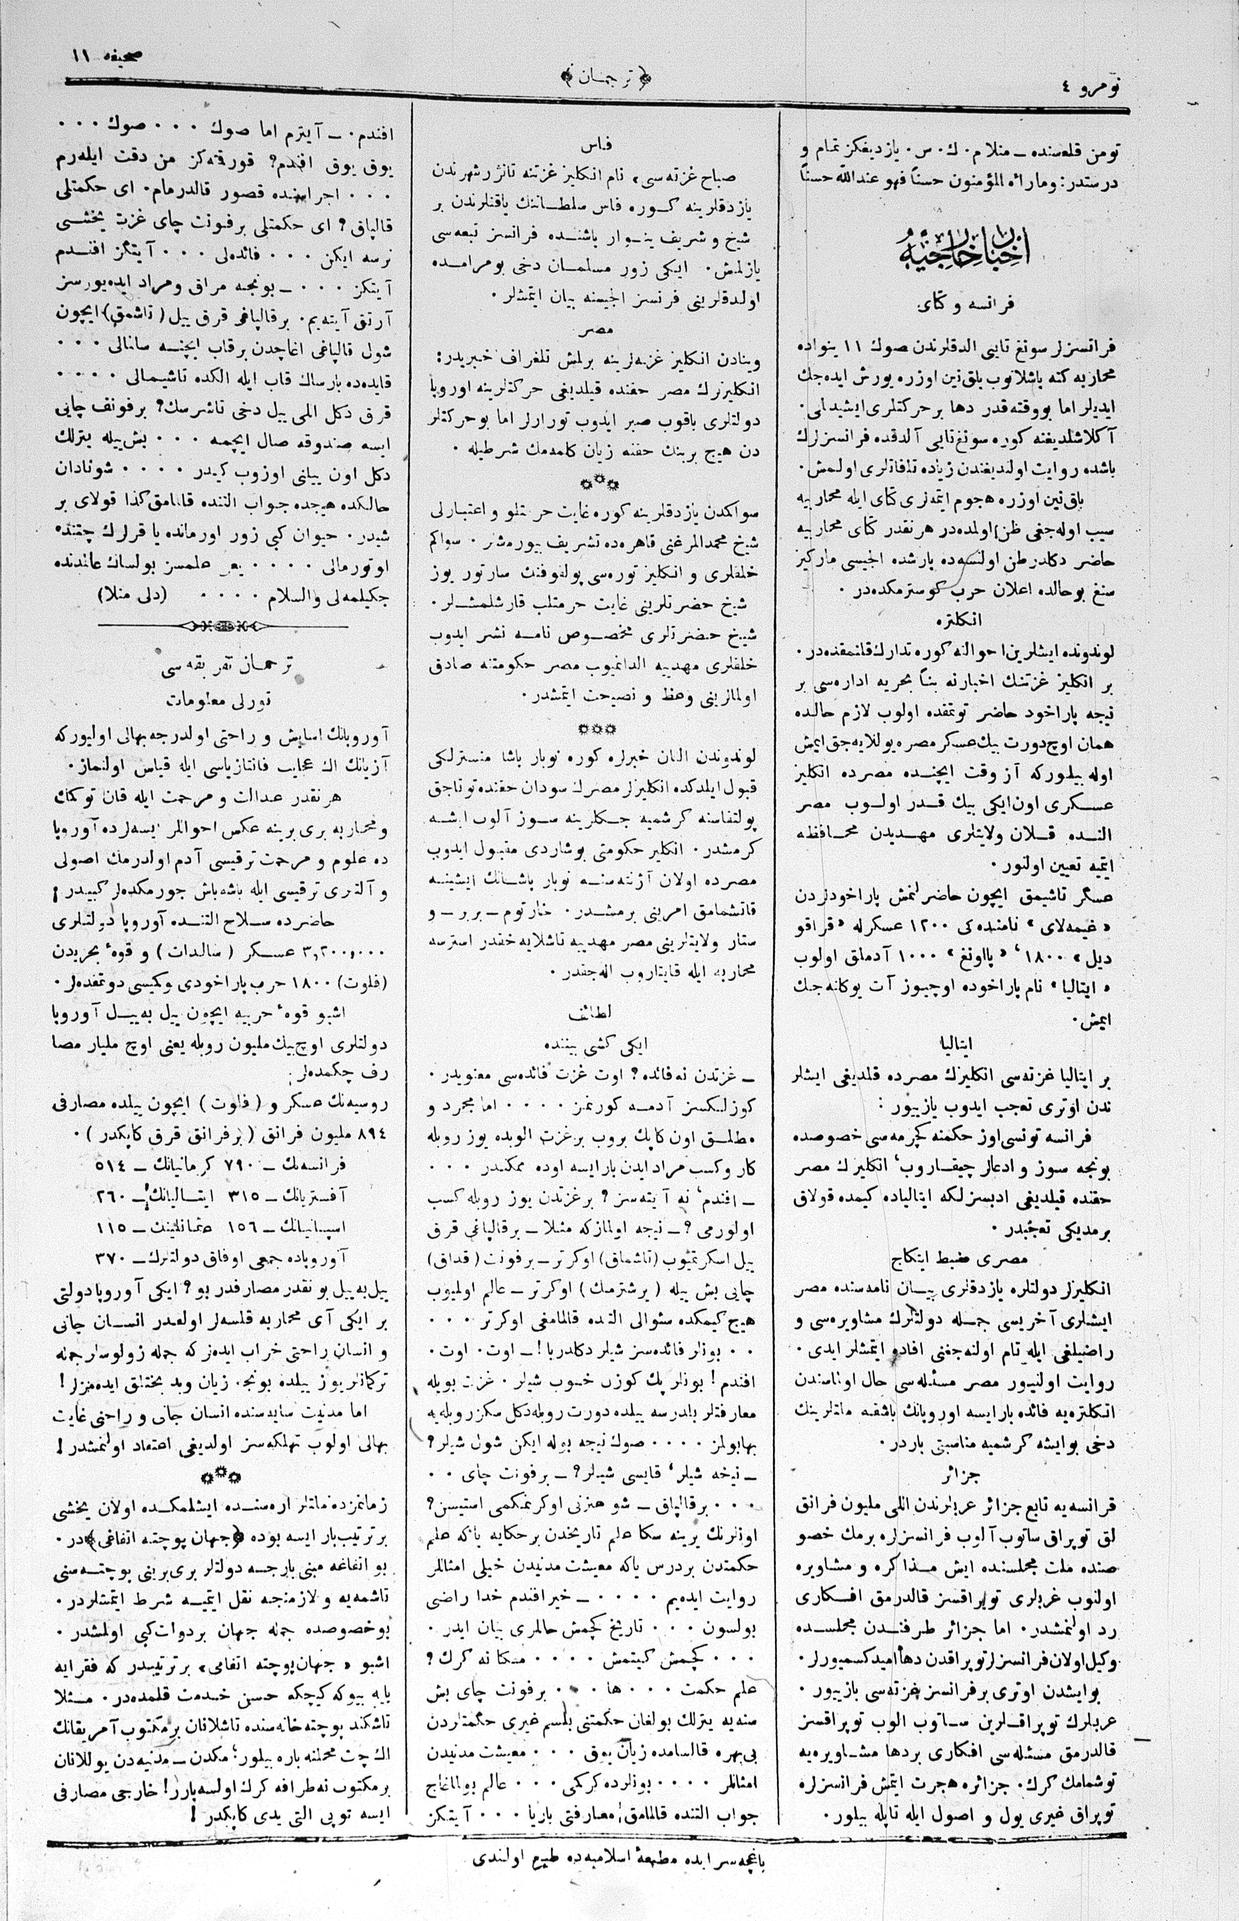 نومرو ٤
﴿ترجمان﴾
صحیفه ١١
تومن قلعه‌سنده ـ منلا م. ك. س. یازدیغكز تمام و
درستدر: وما رأه المؤمنون حسناً فهو عندالله حسناً
اخبار خارجیه
فرانسه و كتای
فرانسزلر سونغ تایی الدقلرندن صوك ١١ ینواده
محاربه كته باشلانوب باق نین اوزره یورش ایده‌جك
ایدیلر اما بووقته قدر دها بر حركتلری ایشیدلی.
آكلاشلدیغنه كوره سونغ تایی آلدقده فرانسزلرك
باشده روایت اولندیغندن زیاده تلفاتلری اولمش.
باق نین اوزره هجوم ایتمه‌لری كتای ایله محاربه‌یه
سبب اوله‌جغی ظن اولمده‌در هر نقدر كتای محاربه‌یه
حاضر دكلدر ظن اولنسه‌ده پارشده الجیسی ماركیز
سنغ بو حالده اعلان حرب كوسترمكده‌در.
انكلتره
لوندونده ایشلرین احوالنه كوره تدارك قلنمقده‌در.
بر انكلیز غزتنك اخبارنه بناً بحریه اداره‌سی بر
نیجه پاراخود حاضر توتمقده اولوب لازم حالده
همان اوچ دورت بیك عسكر مصره یوللایه‌جق ایمش
اوله بیلوركه آز وقت ایچنده مصرده انكلیز
عسكری اون ایكی بیك قدر اولوب مصر
النده قلان ولایتلری مهدیدن محافظه
ایتمیه تعیین اولنور.
عسكر تاشیمق ایچون حاضرلنمش پاراخودلردن
«غیمه‌لای» نامنده‌كی ١٢٠٠ عسكرله «قراقو
دیل» ١٨٠٠، «پااونغ» ١٠٠٠ آدملق اولوب
«ایتالیا» نام پاراخوده اوچیوز آت یوكلنه‌جك
ایمش.
ایتالیا
بر ایتالیا غزته‌سی انكلیزك مصرده قلدیغی ایشلر
ندن اوتری تعجب ایدوب یازییور:
فرانسه تونسی اوز حكمنه كچرمه‌سی خصوصده
بونجه سوز و ادعالر چیقاروب، انكلیزك مصر
حقنده قیلدیغی ادبسزلكه ایتالیاده كیمده قولاق
برمدیكی تعجبدر.
مصری ضبط ایتكاج
انكلیزلر دولتلره یازدقلری بیان نامه‌سنده مصر
ایشلری آخریسی جمله دولتلرك مشاوره‌سی و
راضیلغی ایله تام اولنه‌جغنی افاده ایتمشلر ایدی.
روایت اولنیور مصر مسئله‌سی حال اولناسندن
انكلتره‌یه فائده بار ایسه اوروپانك باشقه ملتلرینك
دخی بو ایشه كرشمیه مناسبتی باردر.
جزائر
فرانسه‌یه تابع جزائر عربلرندن اللی ملیون فرانق
لق توپراق ساتوب آلوب فرانسزلره برمك خصو
صنده ملت مجلسنده ایش مذاكره و مشاوره
اولنوب عربلری توپراقسز قالدرمق افكاری
رد اولنمشدر. اما جزائر طرفندن مجلسده
وكیل اولان فرانسزلر توپراقدن دها امید كسمیورلر.
بو ایشدن اوتری بر فرانسز غزته‌سی یازییور.
عربلرك توپراقلرین ساتوب الوب توپراقسز
قالدرمق مسئله‌سی افكاری بردها مشاوره‌یه
توشمامك كرك. جزائره هجرت ایتمش فرانسزلره
توپراق غیری یول و اصول ایله تاپله بیلور.
فاس
صباح غزته‌سی، نام انكلیز غزتنه تانژر شهرندن
یازدقلرینه كوره فاس سلطاننك یاقنلرندن بر
شیخ و شریف ینوار باشنده فرانسز تبعه‌سی
یازلمش. ایكی زور مسلمان دخی بو مرامده
اولدقلرینی فرنسز الجیسنه بیان ایتمشلر.
مصر
وینادن انكلیز غزته‌لرینه برلمش تلغراف خبریدر:
انكلیزلرك مصر حقنده قیلدیغی حركتلرینه اوروپا
دولتلری باقوب صبر ایدوب تورارلر اما بو حركتلر
دن هیچ برینك حقنه زیان كلمه‌مك شرطیله.
سواكدن یازدقلرینه كوره غایت حرمتلو و اعتبارلی
شیخ محمد المرغنی قاهره‌ده تشریف بیورمشلر. سواكم
خلقلری و انكلیز توره‌سی پولقوفنك سارتور یوز
شیخ حضرتلرینی غایت حرمتلب قارشلمشلر.
شیخ حضرتلری مخصوص نامه نشر ایدوب
خلقلری مهدییه الدانمیوب مصر حكومتنه صادق
اولمالرینی وعظ و نصیحت ایتمشدر.
لوندوندن النان خبرلره كوره نوبار پاشا منسترلكی
قبول ایلدكده انكلیزلر مصرك سودان حقنده توتاجق
پولتقاسنه كرشمیه جكلرینه سوز آلوب ایشه
كرمشدر. انكلیز حكومتی بو شاردی مقبول ایدوب
مصرده اولان آژنته‌سنه نوبار پاشانك ایشینه
قاتشمامق امرینی برمشدر. خارتوم ـ بربر ـ و
ستار ولایتلرینی مصر مهدییه تاشلایه‌جقدر استرسه
محاربه ایله قایتاروب اله‌جقدر.
لطائف
ایكی كشی بیننده
ـ غزتدن نه فائده؟ اوت غزت فائده‌سی معنویدر.
كوزلكسز آدمه كورنمز .... اما مجرد و
مطلق اون كاپك بروب بر غزت الوبده یوز روبله
كار و كسب مراد ایدن بار ایسه اوده ممكندر ...
ـ افندم، نه آیته‌سز؟ بر غزتدن یوز روبله كسب
اولورمی؟ ـ نیجه اولمازكه مثلا ـ بر قالپاغی قرق
ییل اسكرتمیوب (تاشماق) اوكرتر ـ بر فونت (قداق)
چایی بش ییله (برشترمك) اوكرتر ـ عالم اولمیوب
هیچ كیمكده سئوالی النده قالمامغی اوكرتر ...
.. بونلر فائده‌سز شیلر دكلدر یا! ـ اوت. اوت.
افندم! بونلر پك كوزل خوب شیلر. غزت بویله
معارفتلر بلدرسه ییلده دورت روبله دكل سكز روبله‌یه
بهابولمز .... صوك نیجه بوله ایكن شول شیلر؟
ـ نیخه شیلر، قایسی شیلر؟ ـ بر فونت چای ..
... بر قالپاق ـ شو هنزنی اوكرنمكمی استیسن؟
اونلرنك برینه سكا علم تاریخدن بر حكایه یاكه علم
حكمتدن بر درس یاكه معیشت مدنیدن خیلی امثاللر
روایت ایده‌یم .... ـ خیر افندم خدا راضی
بولسون ... تاریخ كچمش حاللری بیان ایدر.
... كچمش كیتمش .... منكا نه كرك؟
علم حكمت ... ها ... بر فونت چای بش
سنه‌یه یتزلك بولغان حكمتنی بلسم غیری حكمتلردن
بی‌بهره قالسامده زیان یوق ... معیشت مدنیدن
امثاللر .... بونلرده كركمی ... عالم بولماغاج
جواب التنده قالمامق، معارفتی بازیا ... آیتكز
افندم. ـ آیترم اما صوك ... صوك ...
یوق یوق افندم؟ قورقمه‌كز من دقت ایله‌رم
... اجراسنده قصور قالدرمام. ای حكمتلی
قالپاق؟ ای حكمتلی بر فونت چای غزت یخشی
نرسه ایكن ... فائده‌لی ... آیتگز افندم
آیتكز ... ـ بونجه مراق و مراد ایده‌یورسز
آرتق آیته‌یم. بر قالپاقی قرق ییل (تاشمق) ایچون
شول قالپاغی اغاجدن بر قاب ایچنه سانالی ...
قایده‌ده بارساك قاب ایله الكده تاشیمالی ....
قرق دكل اللی ییل دخی تاشرسك؟ بر فونق چایی
ایسه صندوقه صال ایچمه ... بش ییله یتزلك
دكل اون ییلنی اوزوب كیدر .... شونادان
حالكده هیچده جواب النده قالمامق كذا قولای بر
شیدر. حیوان كبی زور اورمانده یا قرلرك چقنده
اوتورمالی .... یعنی علمسز بولساك عالمدنده
چكیلمه‌لی والسلام .... (دلی منلا)
ترجمان تفریقه‌سی
تورلی معلومات
آوروپانك اسایش و راحتی اولدرجه بهالی اولیوركه
آزیانك اك عجایب فانتازیاسی ایله قیاس اولنماز.
هر نقدر عدالت و مرحمت ایله قان توكمك
و محاربه بری برینه عكس احواللر ایسه‌لرده آوروپا
ده علوم و مرحمت ترقیسی آدم اولدرمك اصولی
و آلتلری ترقیسی ایله باشه‌باش یورمكده‌لر كبیدر!
حاضرده سلاح التنده آوروپا دولتلری
٣,٢٠٠,٠٠٠ عسكر (سالدات) و قوهٔ بحریدن
(فلوت) ١٨٠٠ حرب پاراخودی و كمیسی دوتمقده‌لر.
اشبو قوهٔ حربیه ایچون ییل به ییل آوروپا
دولتلری اوچ بیك ملیون روبله یعنی اوچ ملیار مصا
رف چكمده‌لر.
روسیه‌نك عسكر و (فلوت) ایچون ییلده مصارفی
٨٩٤ ملیون فرانق (بر فرانق قرق كاپكدر).
فرانسه‌نك ـ ٧٩٠ گرمانیانك ـ ٥١٤
آفستریانك ـ ٣١٥ ایتالیانك ـ ٢٦٠
اسپانیانك ـ ١٥٦ عثمانلینك ـ ١١٥
آوروپاده جمعی اوفاق دولتلرك ـ ٣٧٠
ییل به ییل بو نقدر مصارفدر بو؟ ایكی آوروپا دولتی
بر ایكی آی محاربه قلسه‌لر اولقدر انسان جانی
و انسان راحتی خراب ایده‌لركه جمله زولوسلر جمله
تركمانلر یوز ییلده بونجه زیان و بدبختلق ایده‌مزلر!
اما مدنیت سایه‌سنده انسان جانی و راحتی غایت
بهالی اولوب تهلكه‌سز اولدیغی اعتماد اولنمشدر!
زمانمزده ملتلر اره‌سنده ایشلمكده اولان یخشی
بر ترتیب بار ایسه بوده ﴿جهان پوچته اتفاغی﴾در.
بو اتفاغه مبنی بارجه دولتلر بری برینی پوچته‌سنی
تاشمه‌یه و لازمنجه نقل ایتمیه شرط ایتمشلردر.
بو خصوصده جمله جهان بر دولت كبی اولمشدر.
اشبو «جهان پوچته اتفاغی» بر ترتیبدر كه فقرایه
بایه بیوكه كیچكه حسن خدمت قلمده‌در. مثلا
تاشكند پوچته‌خانه‌سنده تاشلانان بر مكتوب آمریقانك
اك چت محلنه باره بیلور؛ مكدن ـ مدنیه‌دن یوللانان
بر مكتوب نه طرافه كرك اولسه بارر! خارجی مصارفی
ایسه توپی التی یدی كاپكدر!
باغچه‌سرایده مطبعهٔ اسلامیه‌ده طبع اولندی